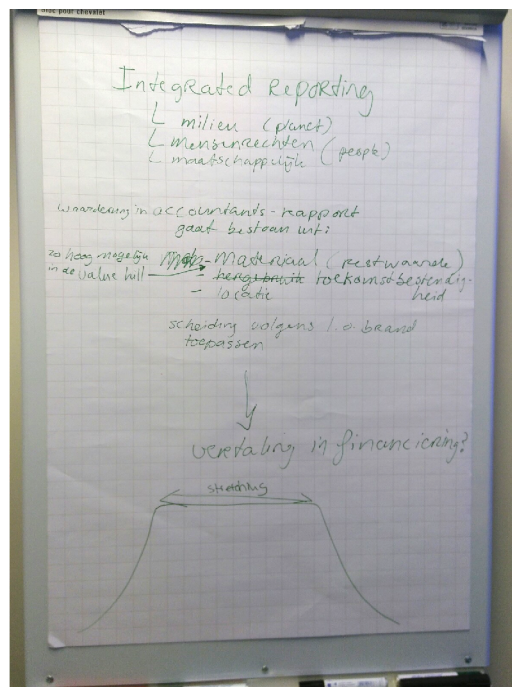 bloc pour chevalet
Integrated Reporting
L milieu (planet)
L mensenrechten (people)
L maatschappelijk
waardering in accountants-rapport
gaat bestaan uit:
zo hoog mogelijk
in de value hill
- Materiaal (restwaarde)
- hergebruik toekomstbestendig-
heid
- locatie
scheiding volgens l.o. brand
toepassen
vertaling in financiering?
stretching